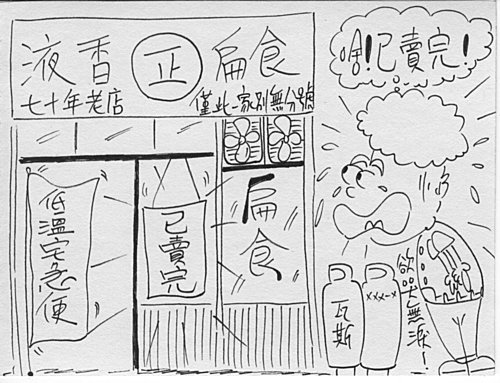 液香 正 扁食
七十年老店
僅此一家別無分號
低溫宅急便
已賣完
扁食
啥!已賣完!
欲哭無淚!
瓦斯
xxx-x